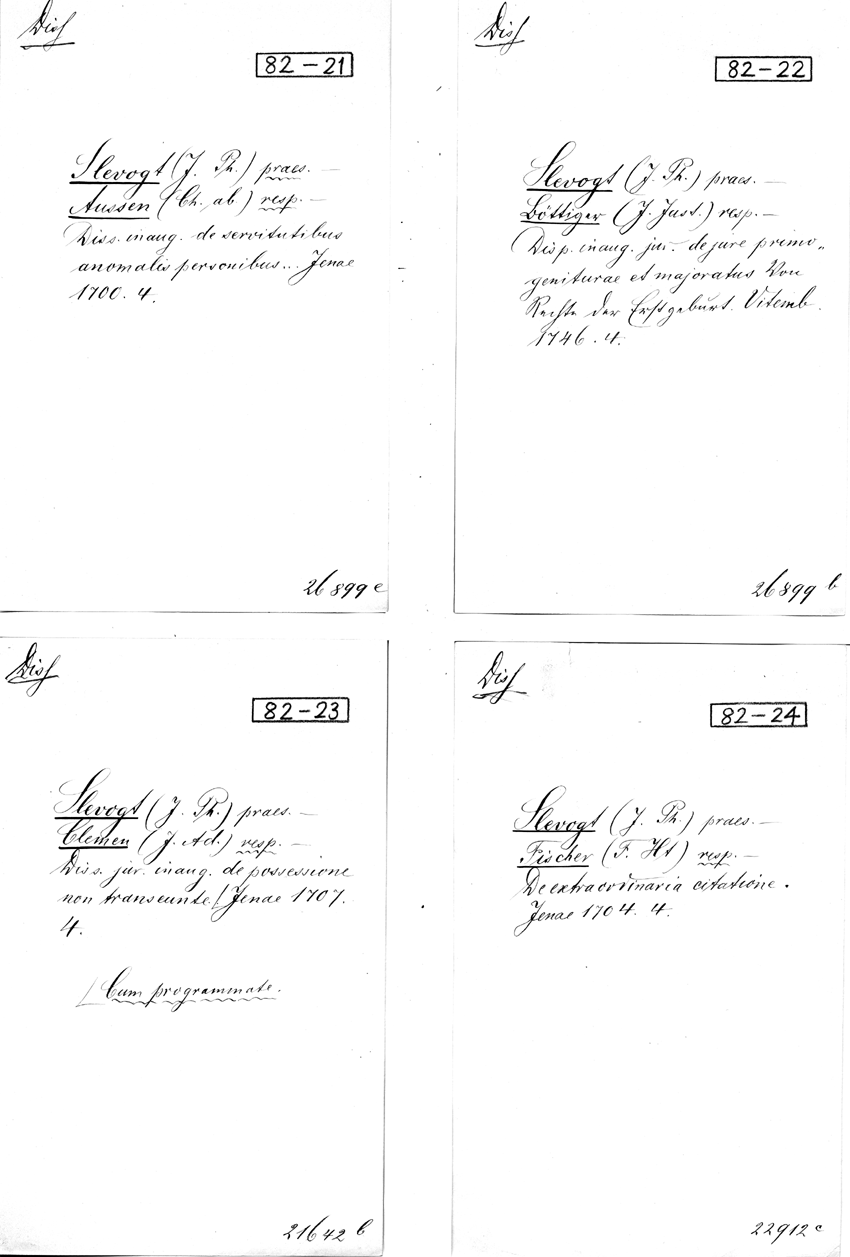 Diss
82-21
Slevogt (J. Ph.) praes. —
Aussen (Ch. ab) resp. —
Diss. inaug. de servitutibus
anomalis personibus... Jenae
1700. 4.
26899 e
Diss
82-22
Slevogt (J. Ph.) praes. —
Böttiger (J. Just.) resp. —
Disp. inaug. jur. de jure primo„
geniturae et majoratus Von
Rechte der Erstgeburt. Vitemb.
1746. 4.
26899 b
Diss
82-23
Slevogt (J. Ph.) praes. —
Clemen (J. Ad.) resp. —
Diss. jur. inaug. de possessione
non transeunte / Jenae 1707.
4.
/ Cum programmate.
21642 b
Diss
82-24
Slevogt (J. Ph.) praes. —
Fischer (F. Ht) resp. —
De extraordinaria citatione.
Jenae 1704. 4.
22912 c